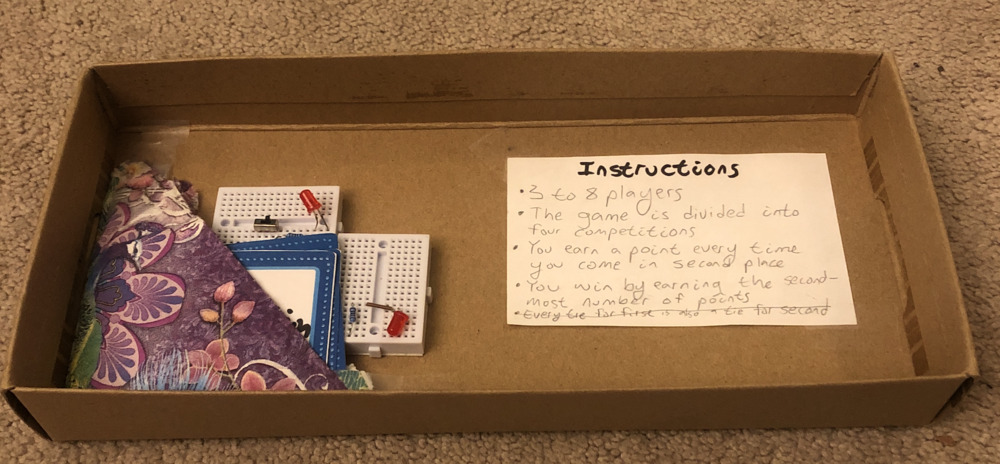 Instructions
• 3 to 8 players
• The game is divided into
four competitions
• You earn a point every time
you come in second place
• You win by earning the second-
most number of points
• Every tie for first is also a tie for second